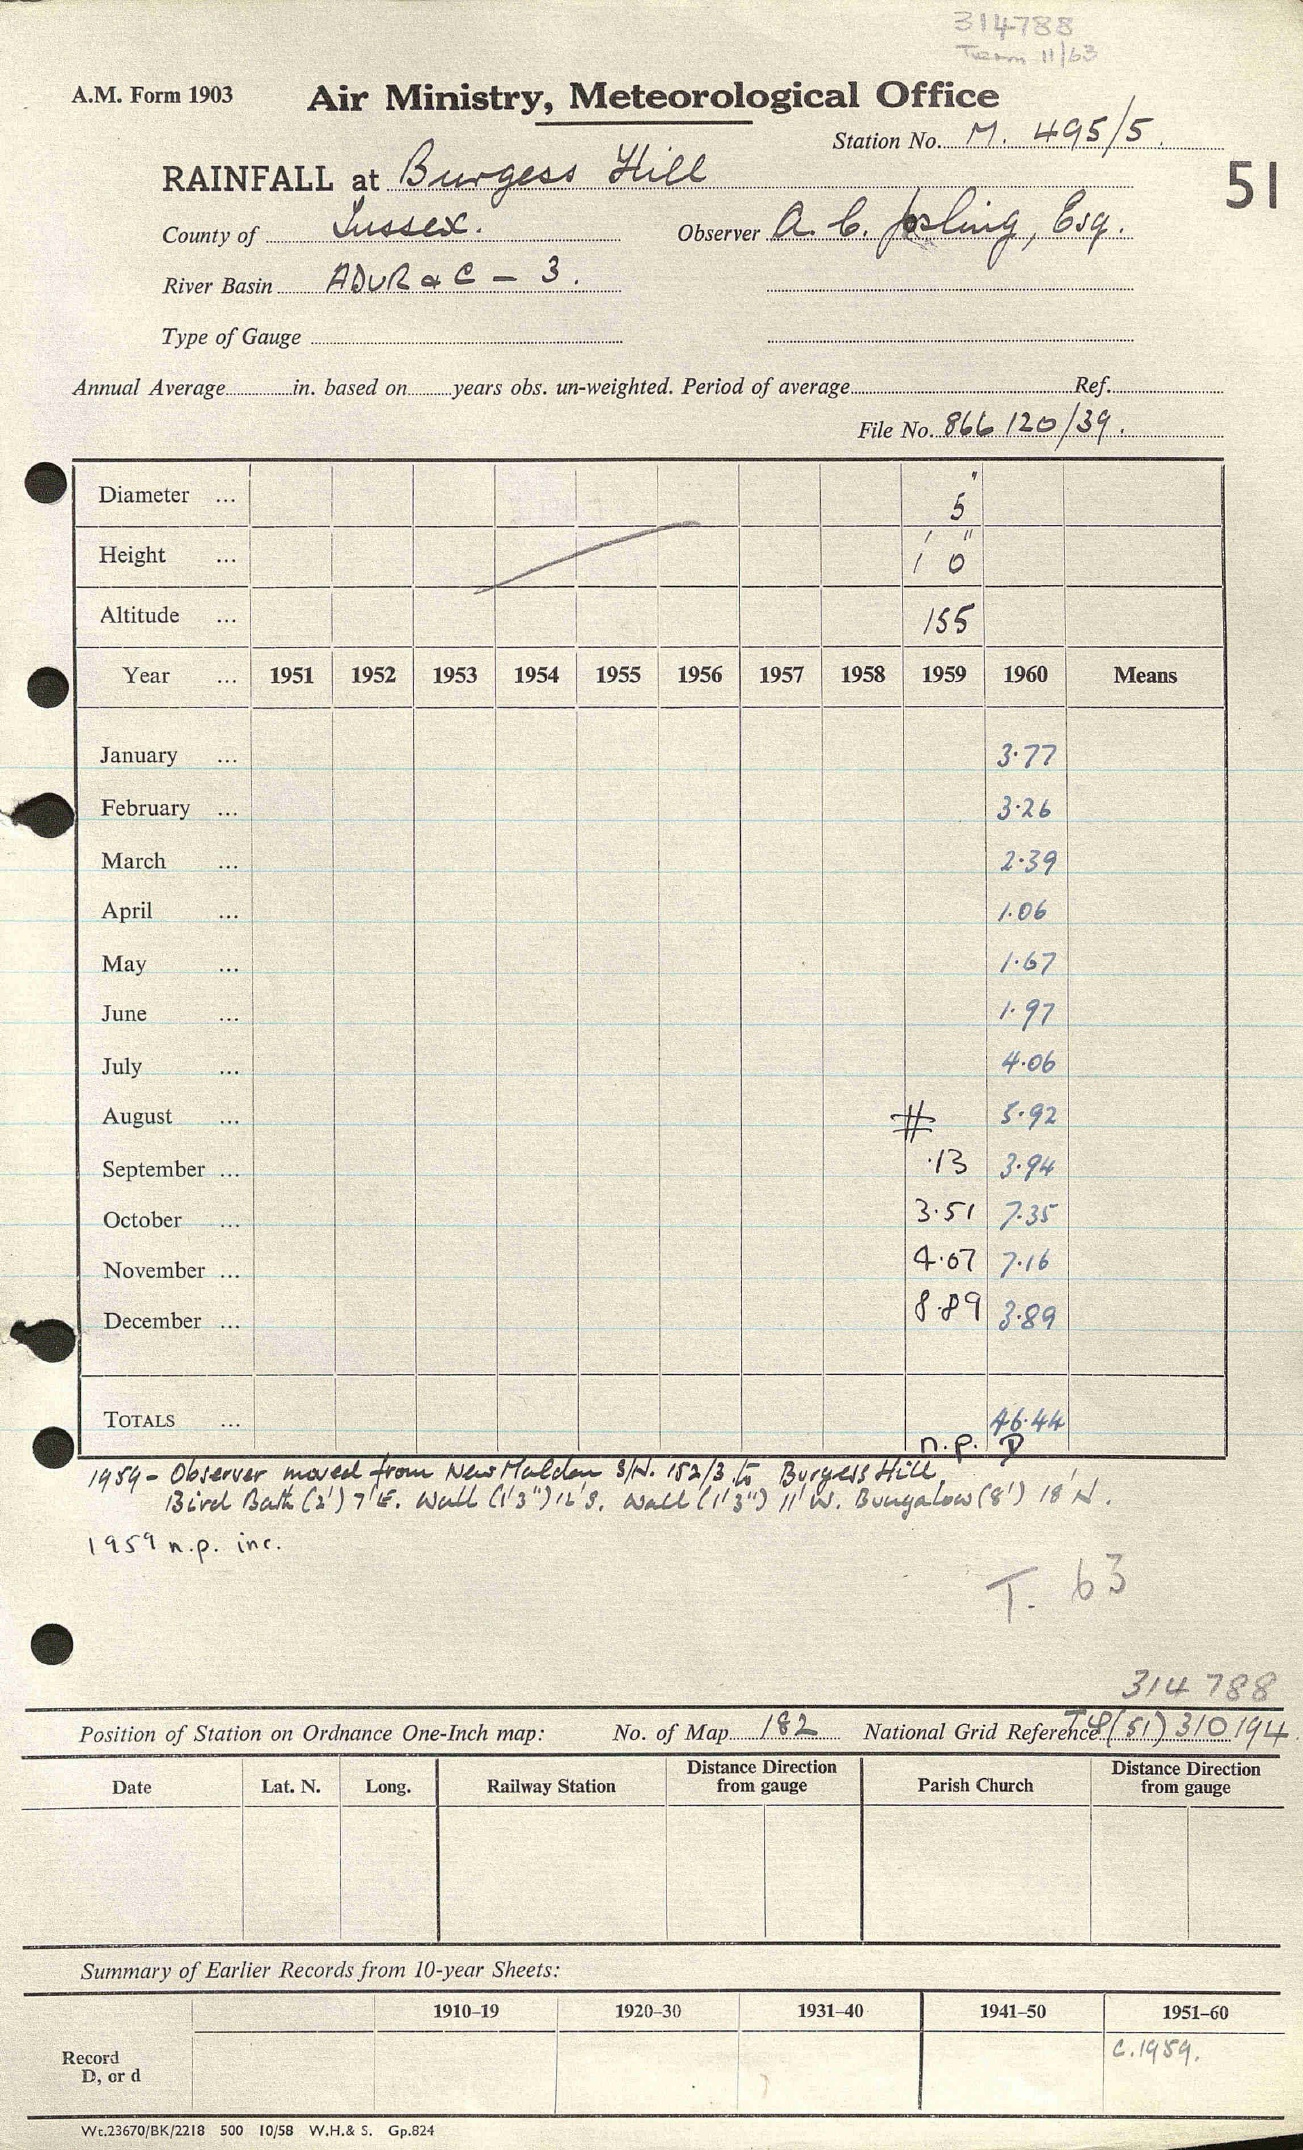 314788
Term 11/63
A.M. Form 1903
Air Ministry, Meteorological Office
Station No. M. 495/5.
RAINFALL at Burgess Hill
51
County of Sussex.
Observer A. C. Josling, Esq.
River Basin ADUR & C – 3.
Type of Gauge
Annual Average in. based on years obs. un-weighted. Period of average Ref.
File No. 866120/39.
Diameter ... 5"
Height ... 1' 0"
Altitude ... 155
Year ... 1951 1952 1953 1954 1955 1956 1957 1958 1959 1960 Means
January ... 3·77
February ... 3·26
March ... 2·39
April ... 1·06
May ... 1·67
June ... 1·97
July ... 4·06
August ... # 5·92
September ... ·13 3·94
October ... 3·51 7·35
November ... 4·07 7·16
December ... 8·89 3·89
TOTALS ... 46·44
n.p. D
1959 – Observer moved from New Malden S/N. 152/3 to Burgess Hill
Bird Bath (2') 7'E. Wall (1'3") 12'S. Wall (1'3") 11'W. Bungalow (8') 18'N.
1959 n.p. inc.
T. 63
314 788
Position of Station on Ordnance One-Inch map: No. of Map 182 National Grid Reference (51) 310194
Date Lat. N. Long. Railway Station Distance Direction from gauge Parish Church Distance Direction from gauge
Summary of Earlier Records from 10-year Sheets:
1910–19 1920–30 1931–40 1941–50 1951–60
Record
D, or d
C.1959.
Wt.23670/BK/2218 500 10/58 W.H.& S. Gp.824